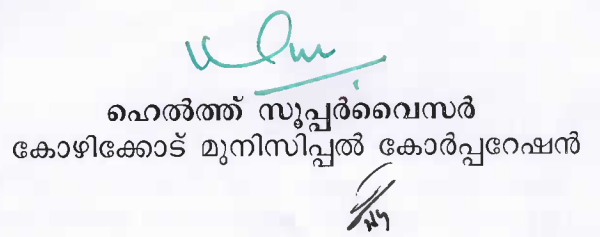 ഹെൽത്ത് സൂപ്പർവൈസർ
കോഴിക്കോട് മുനിസിപ്പൽ കോർപ്പറേഷൻ